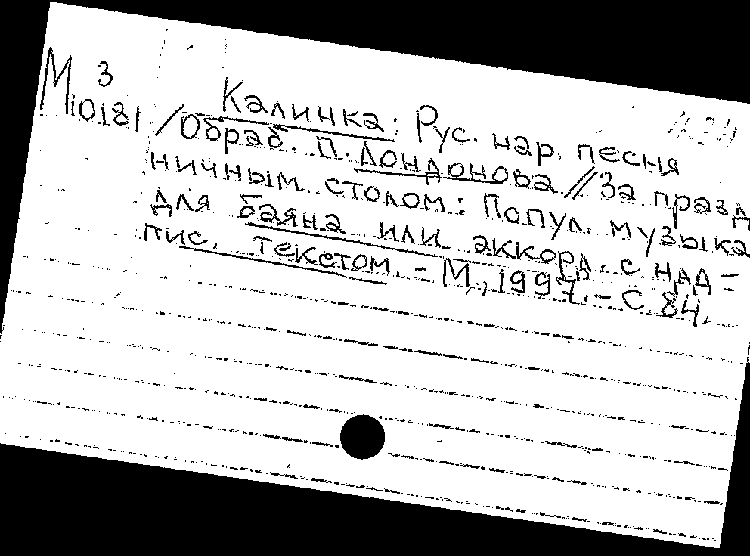 М 3
10181
Калинка: Рус. нар. песня
/Обраб. П. Лондонова // За празд
ничным столом: Попул. музыка
для баяна или аккорд. с над=
пис. текстом. – М., 1997. – С. 84.